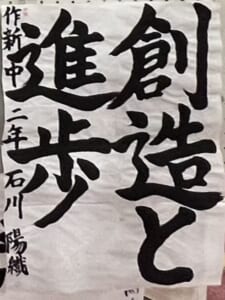 創造と
進歩
作新中 二年 石川 陽織